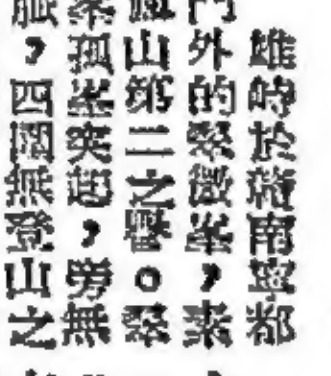 雄峙於龍南寧都
門外的翠微峯，素
山第二之譽。翠
孤峯突起，旁無
，四圍無登山之